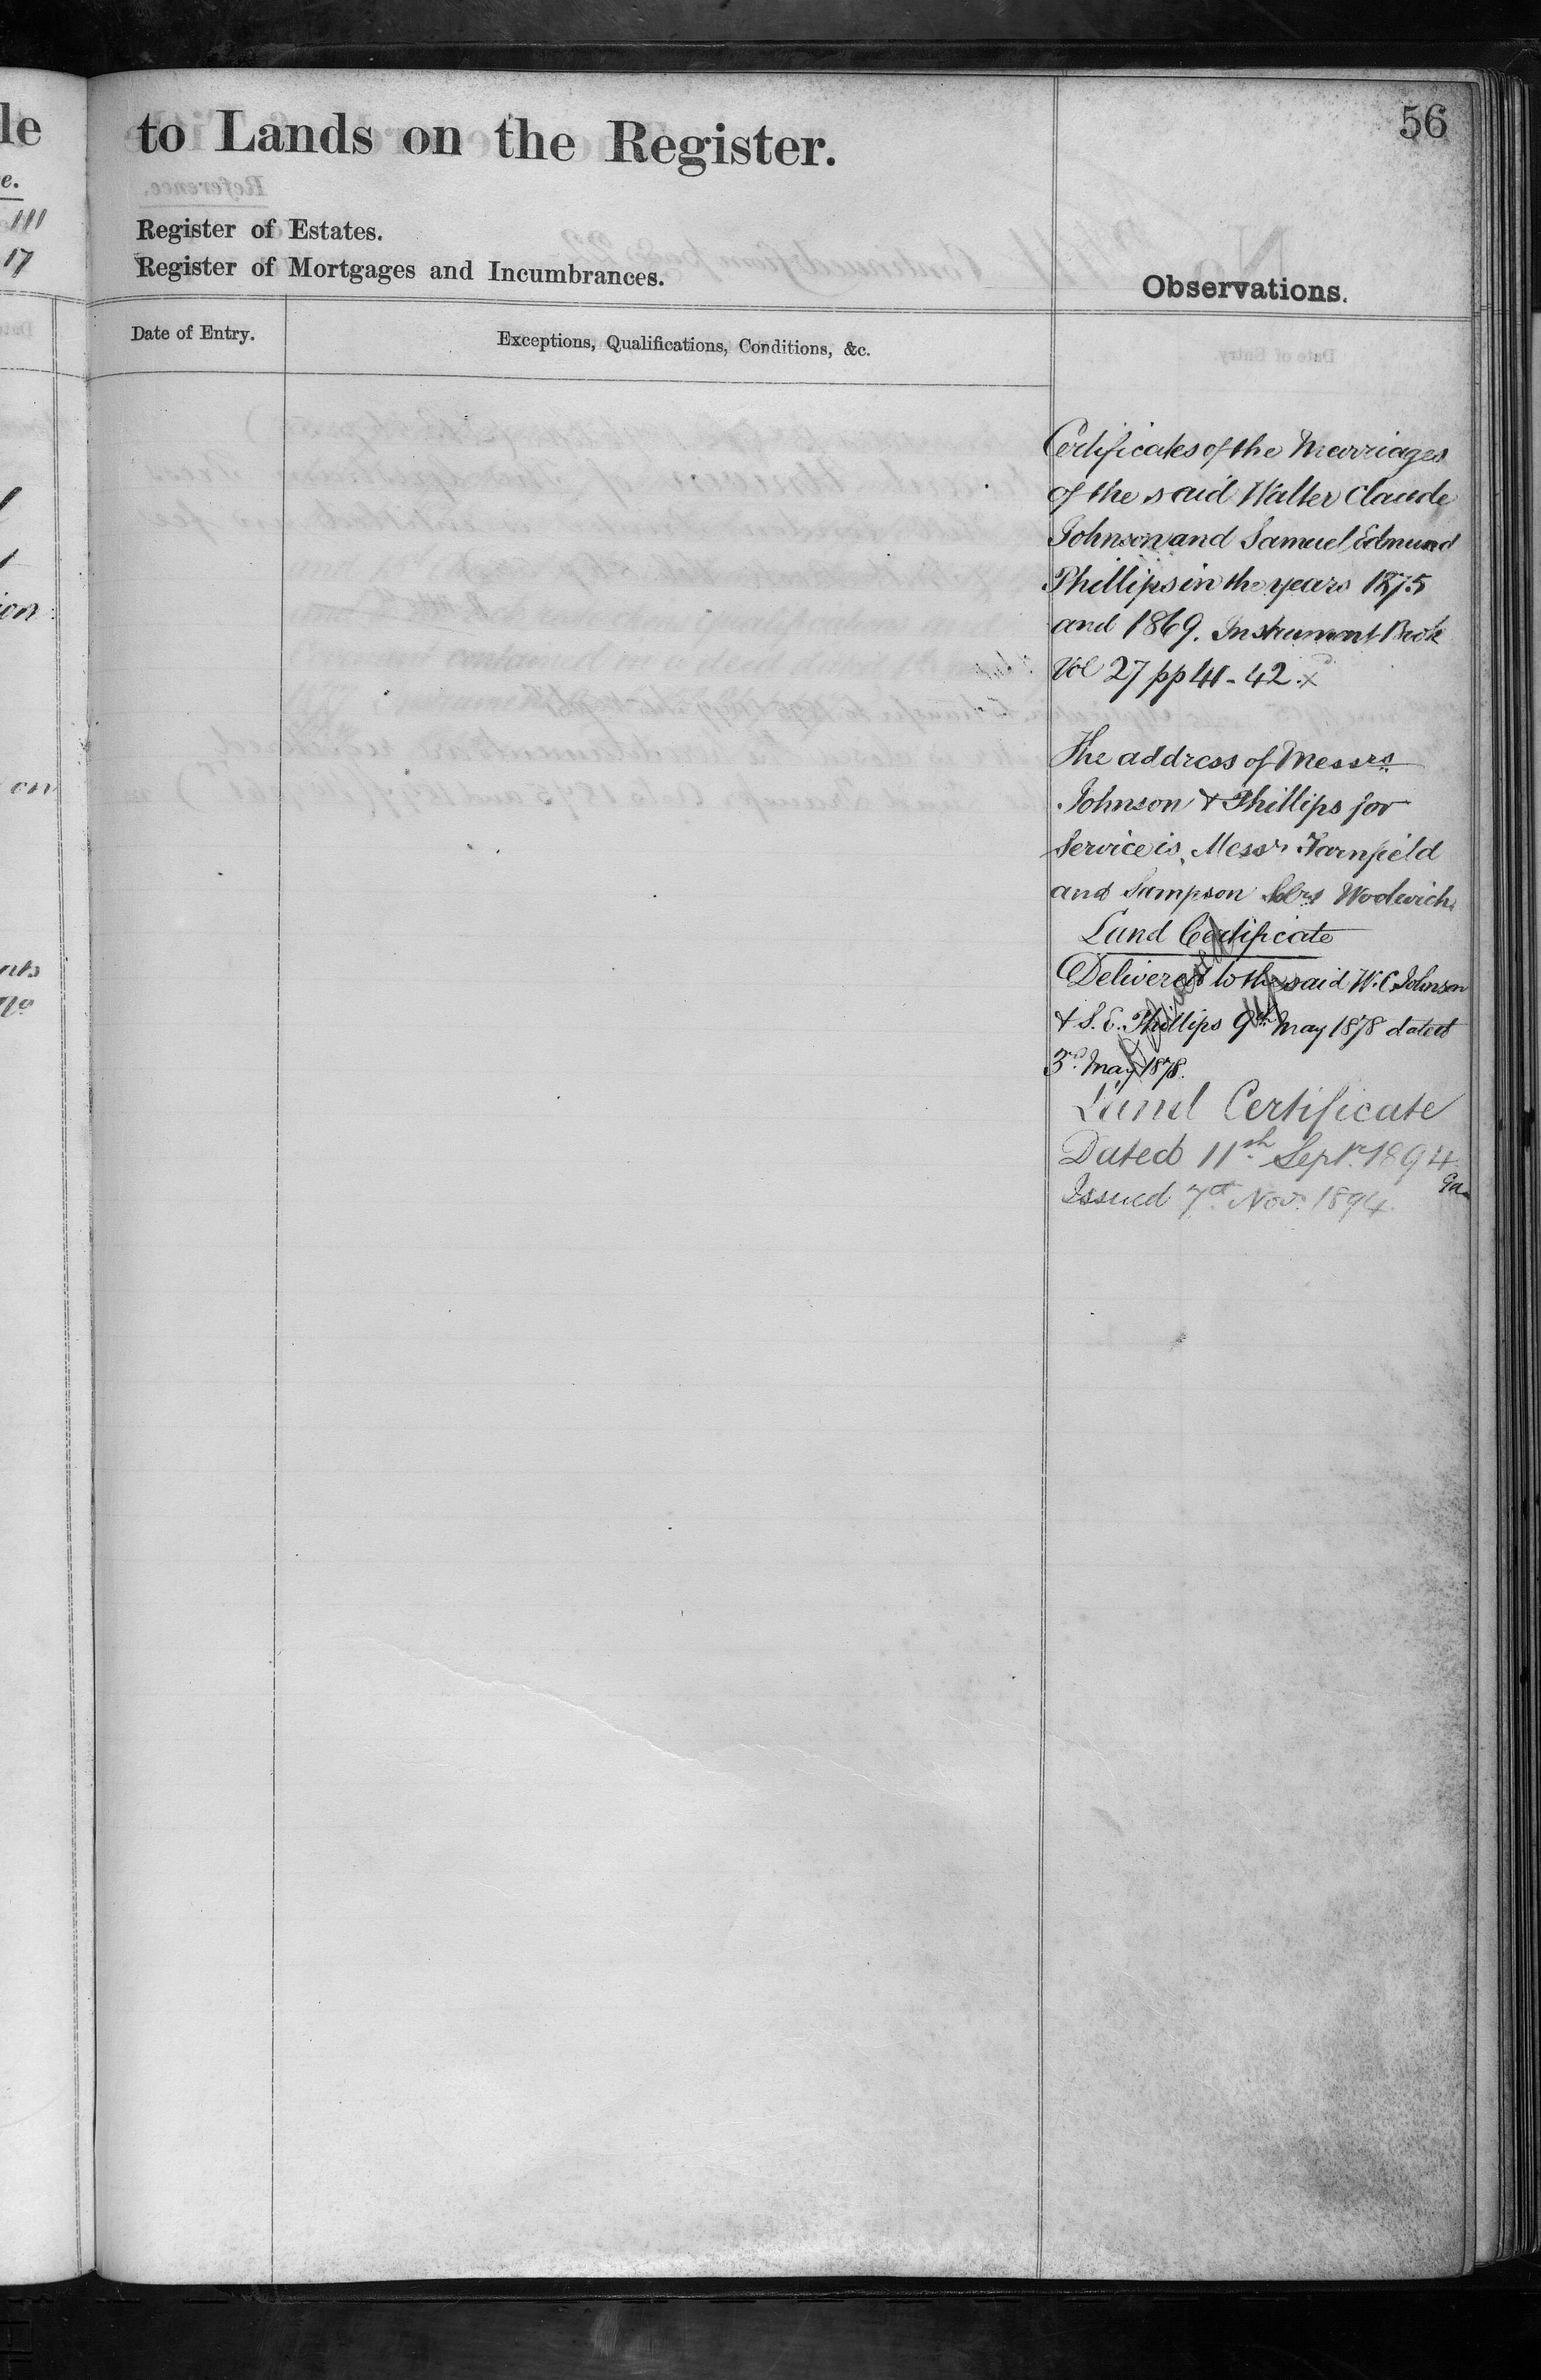 le
e.
111
17
to Lands on the Register.
56
Register of Estates.
Register of Mortgages and Incumbrances.
Observations.
Date of Entry.
Exceptions, Qualifications, Conditions, &c.
Certificates of the Marriages
of the said Walter Claude
Johnson and Samuel Edmund
Phillips in the years 1875
and 1869. Instrument Book
Vol 27 pp 41-42. x
The address of Messrs
Johnson & Phillips for
Service is Messrs Farnfield
and Sampson Solrs Woolwich.
Land Certificate
Delivered to the said W. C. Johnson
& S. E. Phillips 9th May 1878 dated
3rd May 1878.
Land Certificate
Dated 11th Septr. 1894
Issued 7th Nov. 1894.